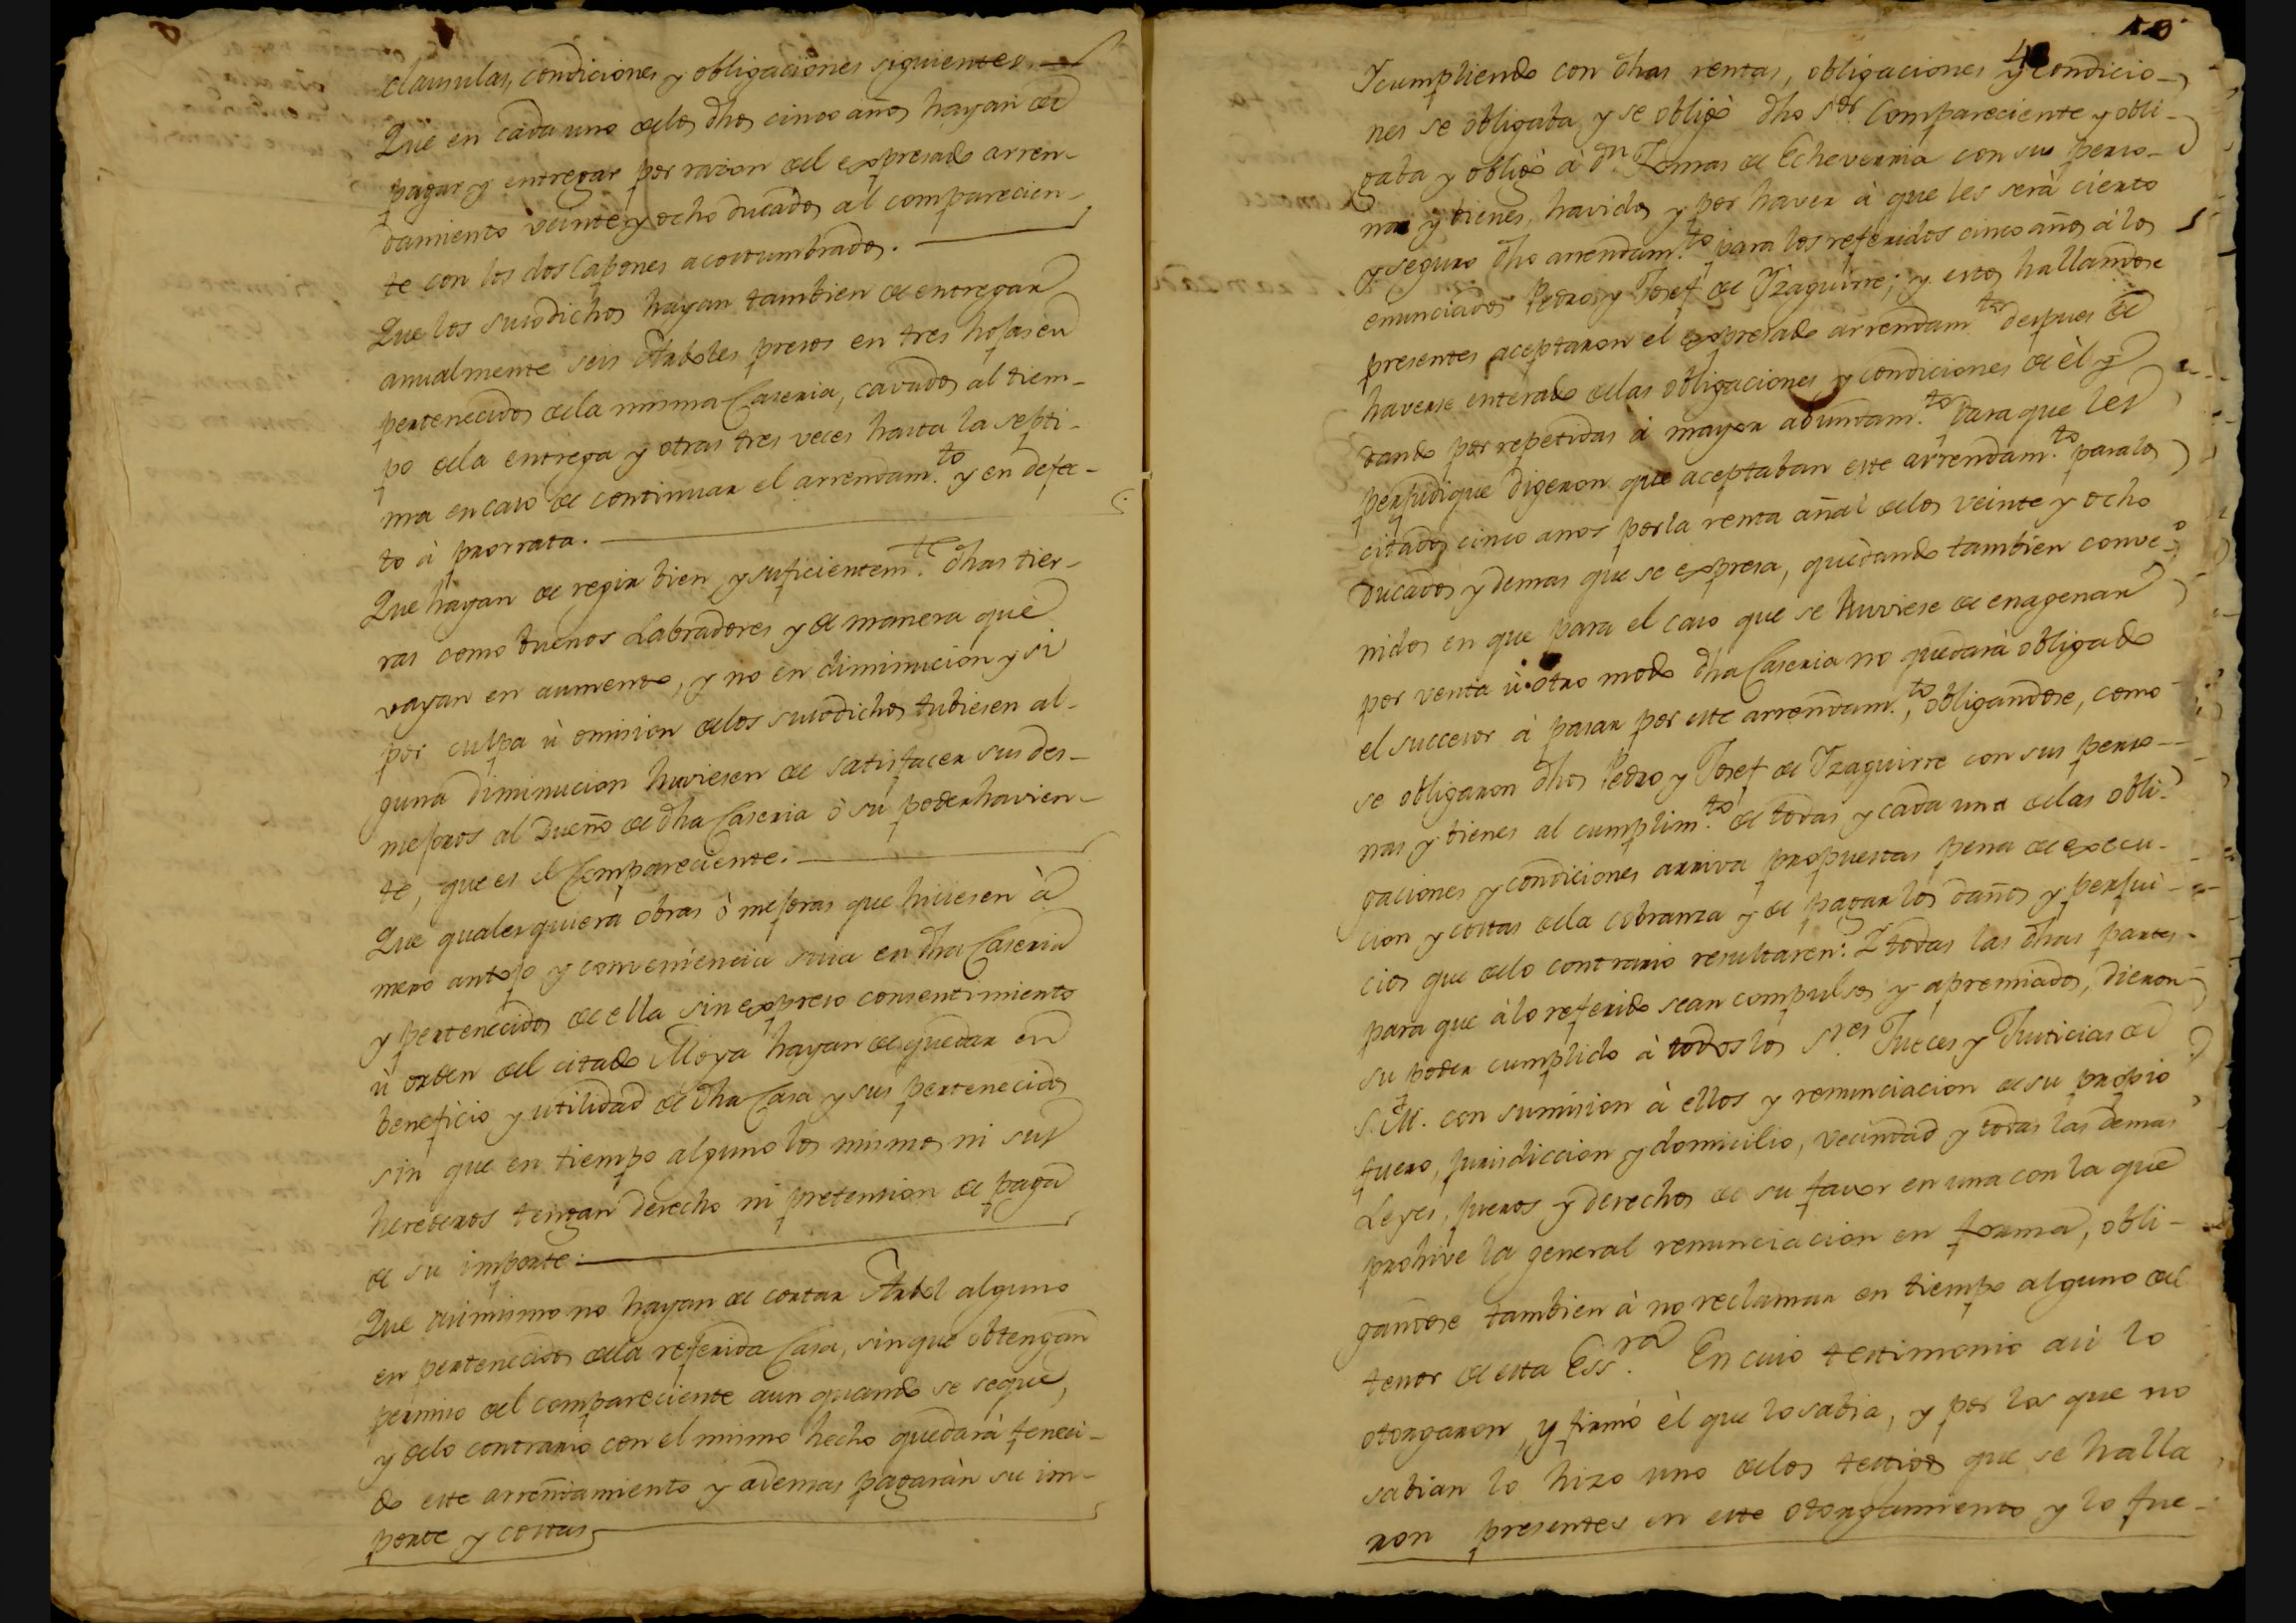 clausulas, condiciones y obligaciones siguientes.
Que en cada uno delos dhos cinco años hayan de
pagar y entregar por razon del expresado arren-
damiento veinte y ocho ducados al comparecien-
te con los dos Capones acostumbrados.
Que los susodichos hayan tambien de entregar
anualmente seis Arboles presos en tres hojas en
pertenecidos dela misma Caseria, cavados al tiem-
po dela entrega y otras tres veces hasta la septi-
ma en caso de continuar el arrendam.to y en defec-
to à prorrata.
Que hayan de regir bien y suficientem.te dhas tier-
ras como buenos Labradores y de manera que
vayan en aumento, y no en diminucion y si
por culpa ù omision delos susodichos tubiesen al-
guna diminucion huviesen de satisfacer sus des-
mejoros al Dueño de dha Caseria ò su poderhavien-
te, que es el Compareciente.
Que qualesquiera obras ò mejoras que hiciesen à
mero antojo y conveniencia suia en dha Caseria
y pertenecidos de ella sin expreso consentimiento
ù orden del citado Moya hayan de quedar en
beneficio y utilidad de dha Casa y sus pertenecidos
sin que en tiempo alguno los mismos ni sus
herederos tengan derecho ni pretension de paga
de su importe.
Que asimismo no hayan de cortar Arbol alguno
en pertenecidos dela referida Casa, sin que obtengan
permiso del compareciente aun quando se seque,
y delo contrario con el mismo hecho quedarà feneci-
do este arrendamiento y ademas pagaràn su im-
porte y costas
40
Y cumpliendo con dhas rentas, obligaciones y condicio-
nes se obligaba y se obligò dho S.or Compareciente y obli-
gaba y obligò à d.n Tomas de Echeverria con su perso-
na y bienes, havidos y por haver à que les serà cierto
y seguro dho arrendam.to para los referidos cinco años à los
enunciados Pedro y Josef de Yzaguirre; y estos hallandose
presentes aceptaron el expresado arrendam.to despues de
haverse enterado delas obligaciones y condiciones de èl y
dando por repetidas à mayor abundam.to para que les
perjudique digeron que aceptaban este arrendam.to para los
citados cinco anos por la renta añal delos veinte y ocho
Ducados y demas que se expresa, quedando tambien conve-
nidos en que para el caso que se huviese de enagenar
por venta ù otro modo dha Caseria no quedarà obligado
el succesor à pasar por este arrendam.to, obligandose, como
se obligaron dhos Pedro y Josef de Yzaguirre con sus perso-
nas y bienes al cumplim.to de todas y cada una delas obli-
gaciones y condiciones arriva propuestas pena de execu-
cion y costas dela cobranza y de pagar los daños y perjui-
cios que delo contrario resultaren: Y todas las dhas partes
para que à lo referido sean compulsos y apremiados, dieron
su poder cumplido à todos los S.res Jueces y Justicias de
S. M. con sumision à ellos y renunciacion de su propio
fuero, jurisdiccion y domicilio, vecindad y todas las demas
Leyes, fueros y derechos de su favor en una con la que
prohive la general renunciacion en forma, obli-
gandose tambien à no reclamar en tiempo alguno del
tenor de esta Ess.ra En cuio testimonio asi lo
otorgaron, y firmò èl que lo sabia, y por los que no
sabian lo hizo uno delos testigos que se halla
ron presentes en este otorgamiento y lo fue-